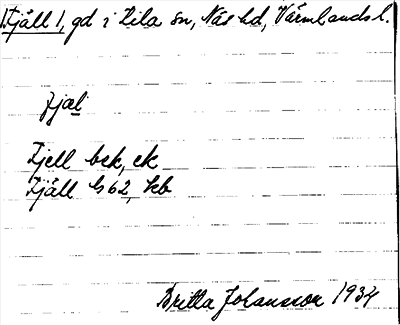 Fjäll 1, gd i Lila sn, Näs hd, Värmlands l.
fjæl
Fjell bek, ek
Fjäll G62, kb
Britta Johansson 1934